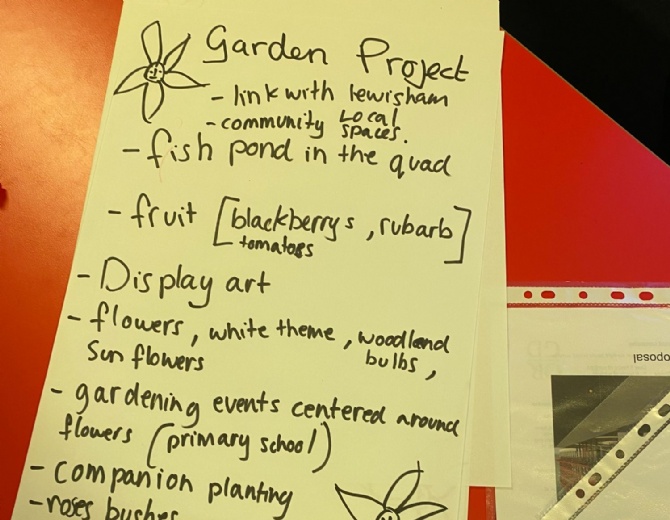 Garden Project
- link with lewisham
- community Local
spaces.
- fish pond in the quad
- fruit [blackberrys, rubarb]
tomatoes
- Display art
- flowers, white theme, woodland
Sun flowers bulbs,
- gardening events centered around
flowers (primary school)
- companion planting
- roses bushes
oposal